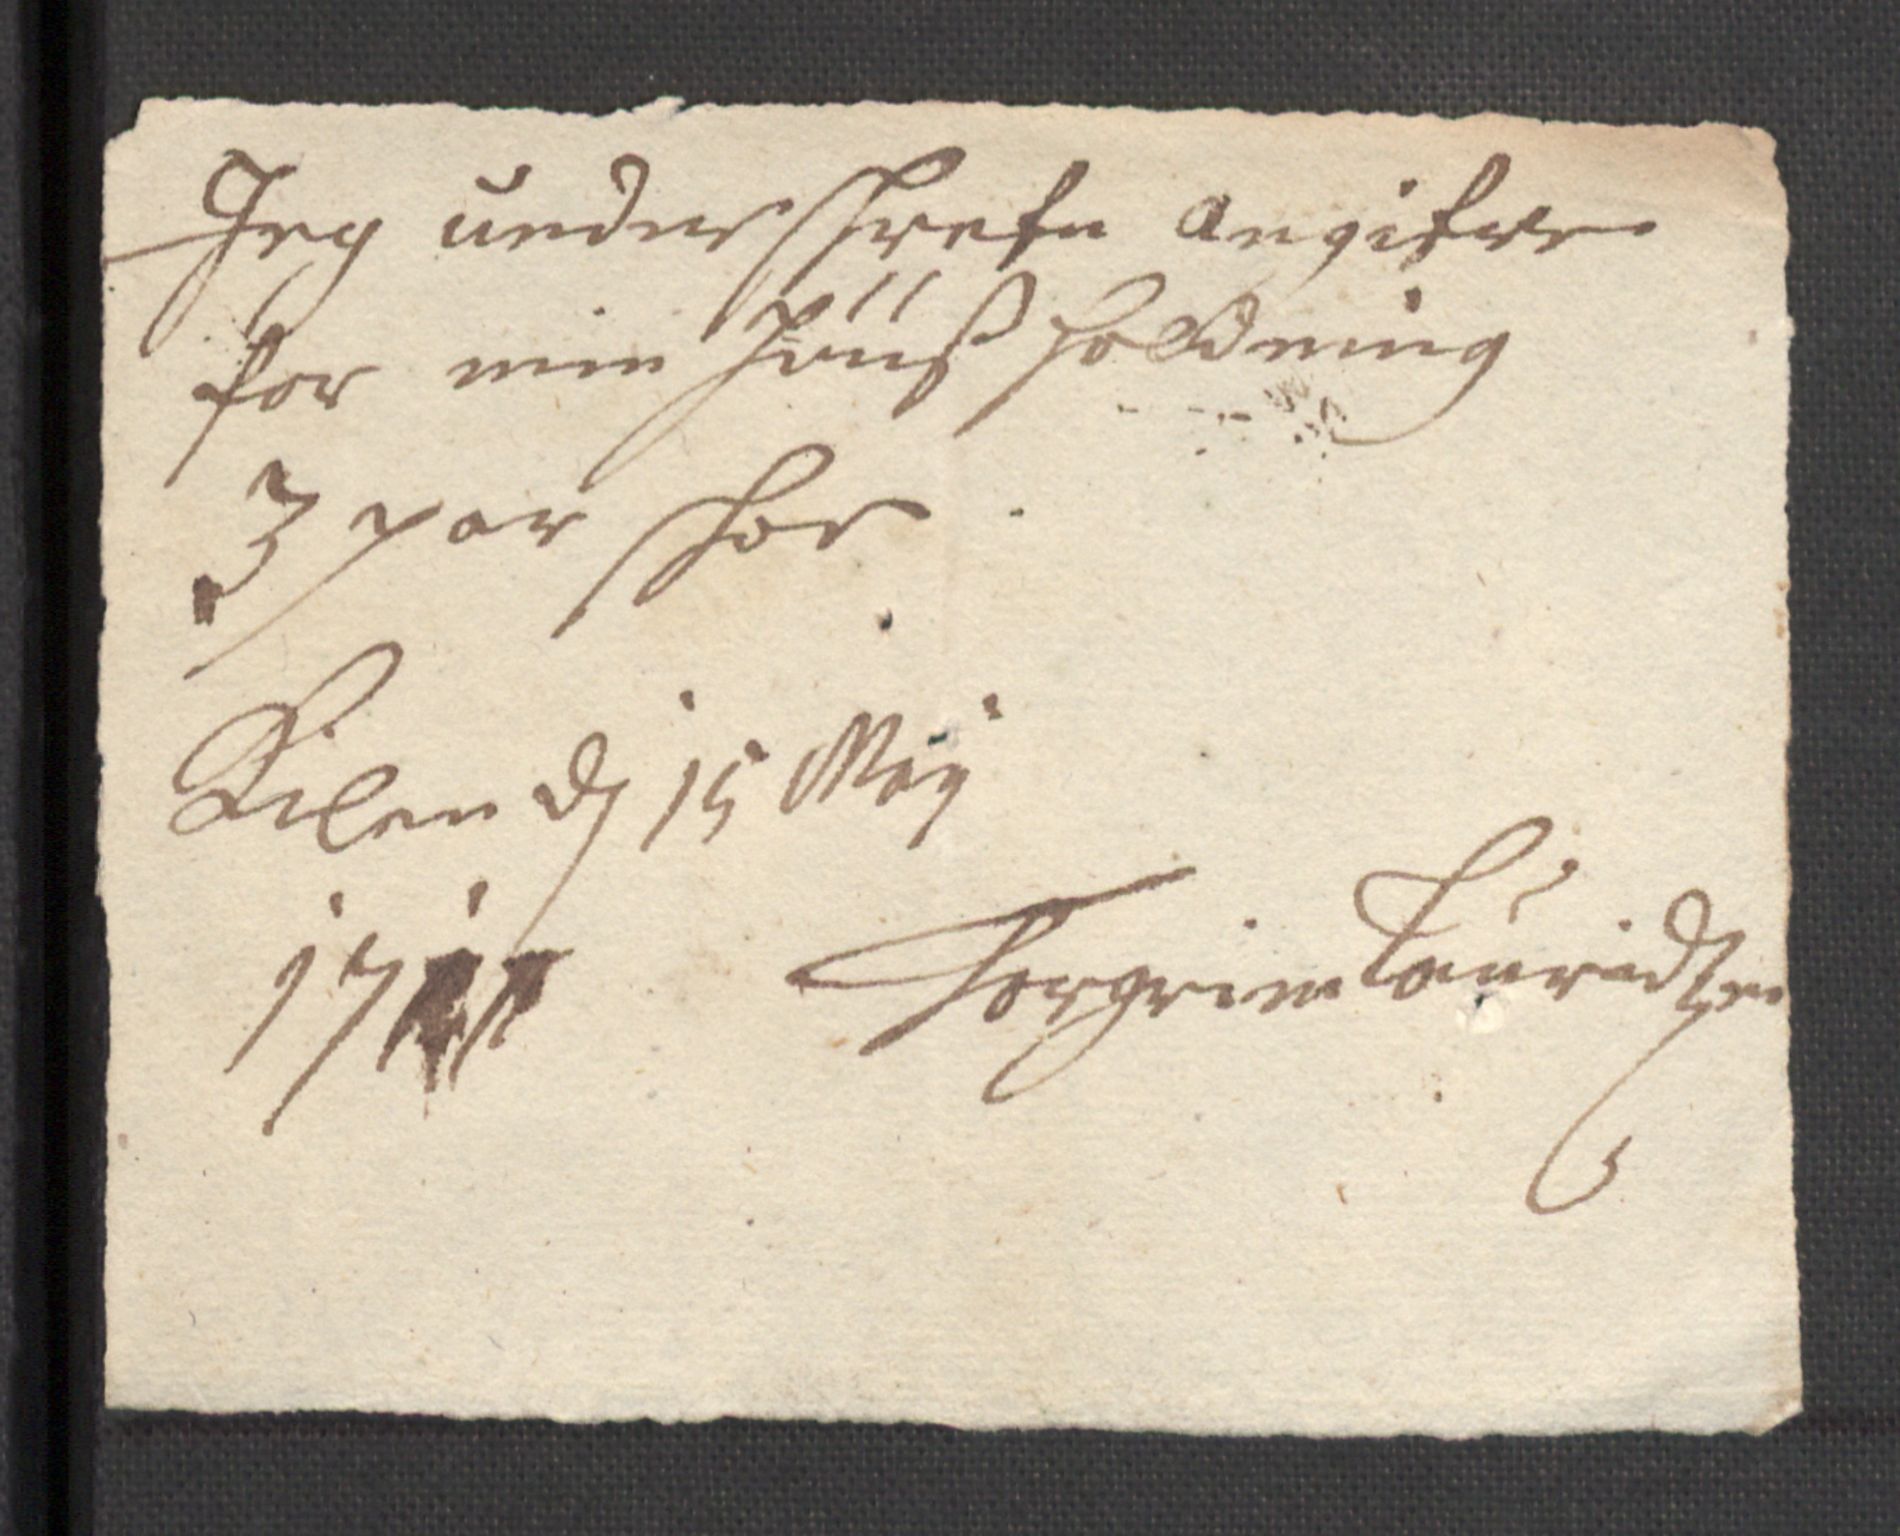 Jeg underskrefn angifver
for min huusholdning
3 par skoe
Kilen d 15 Maÿ
1711 Torgrim Lauridtzen